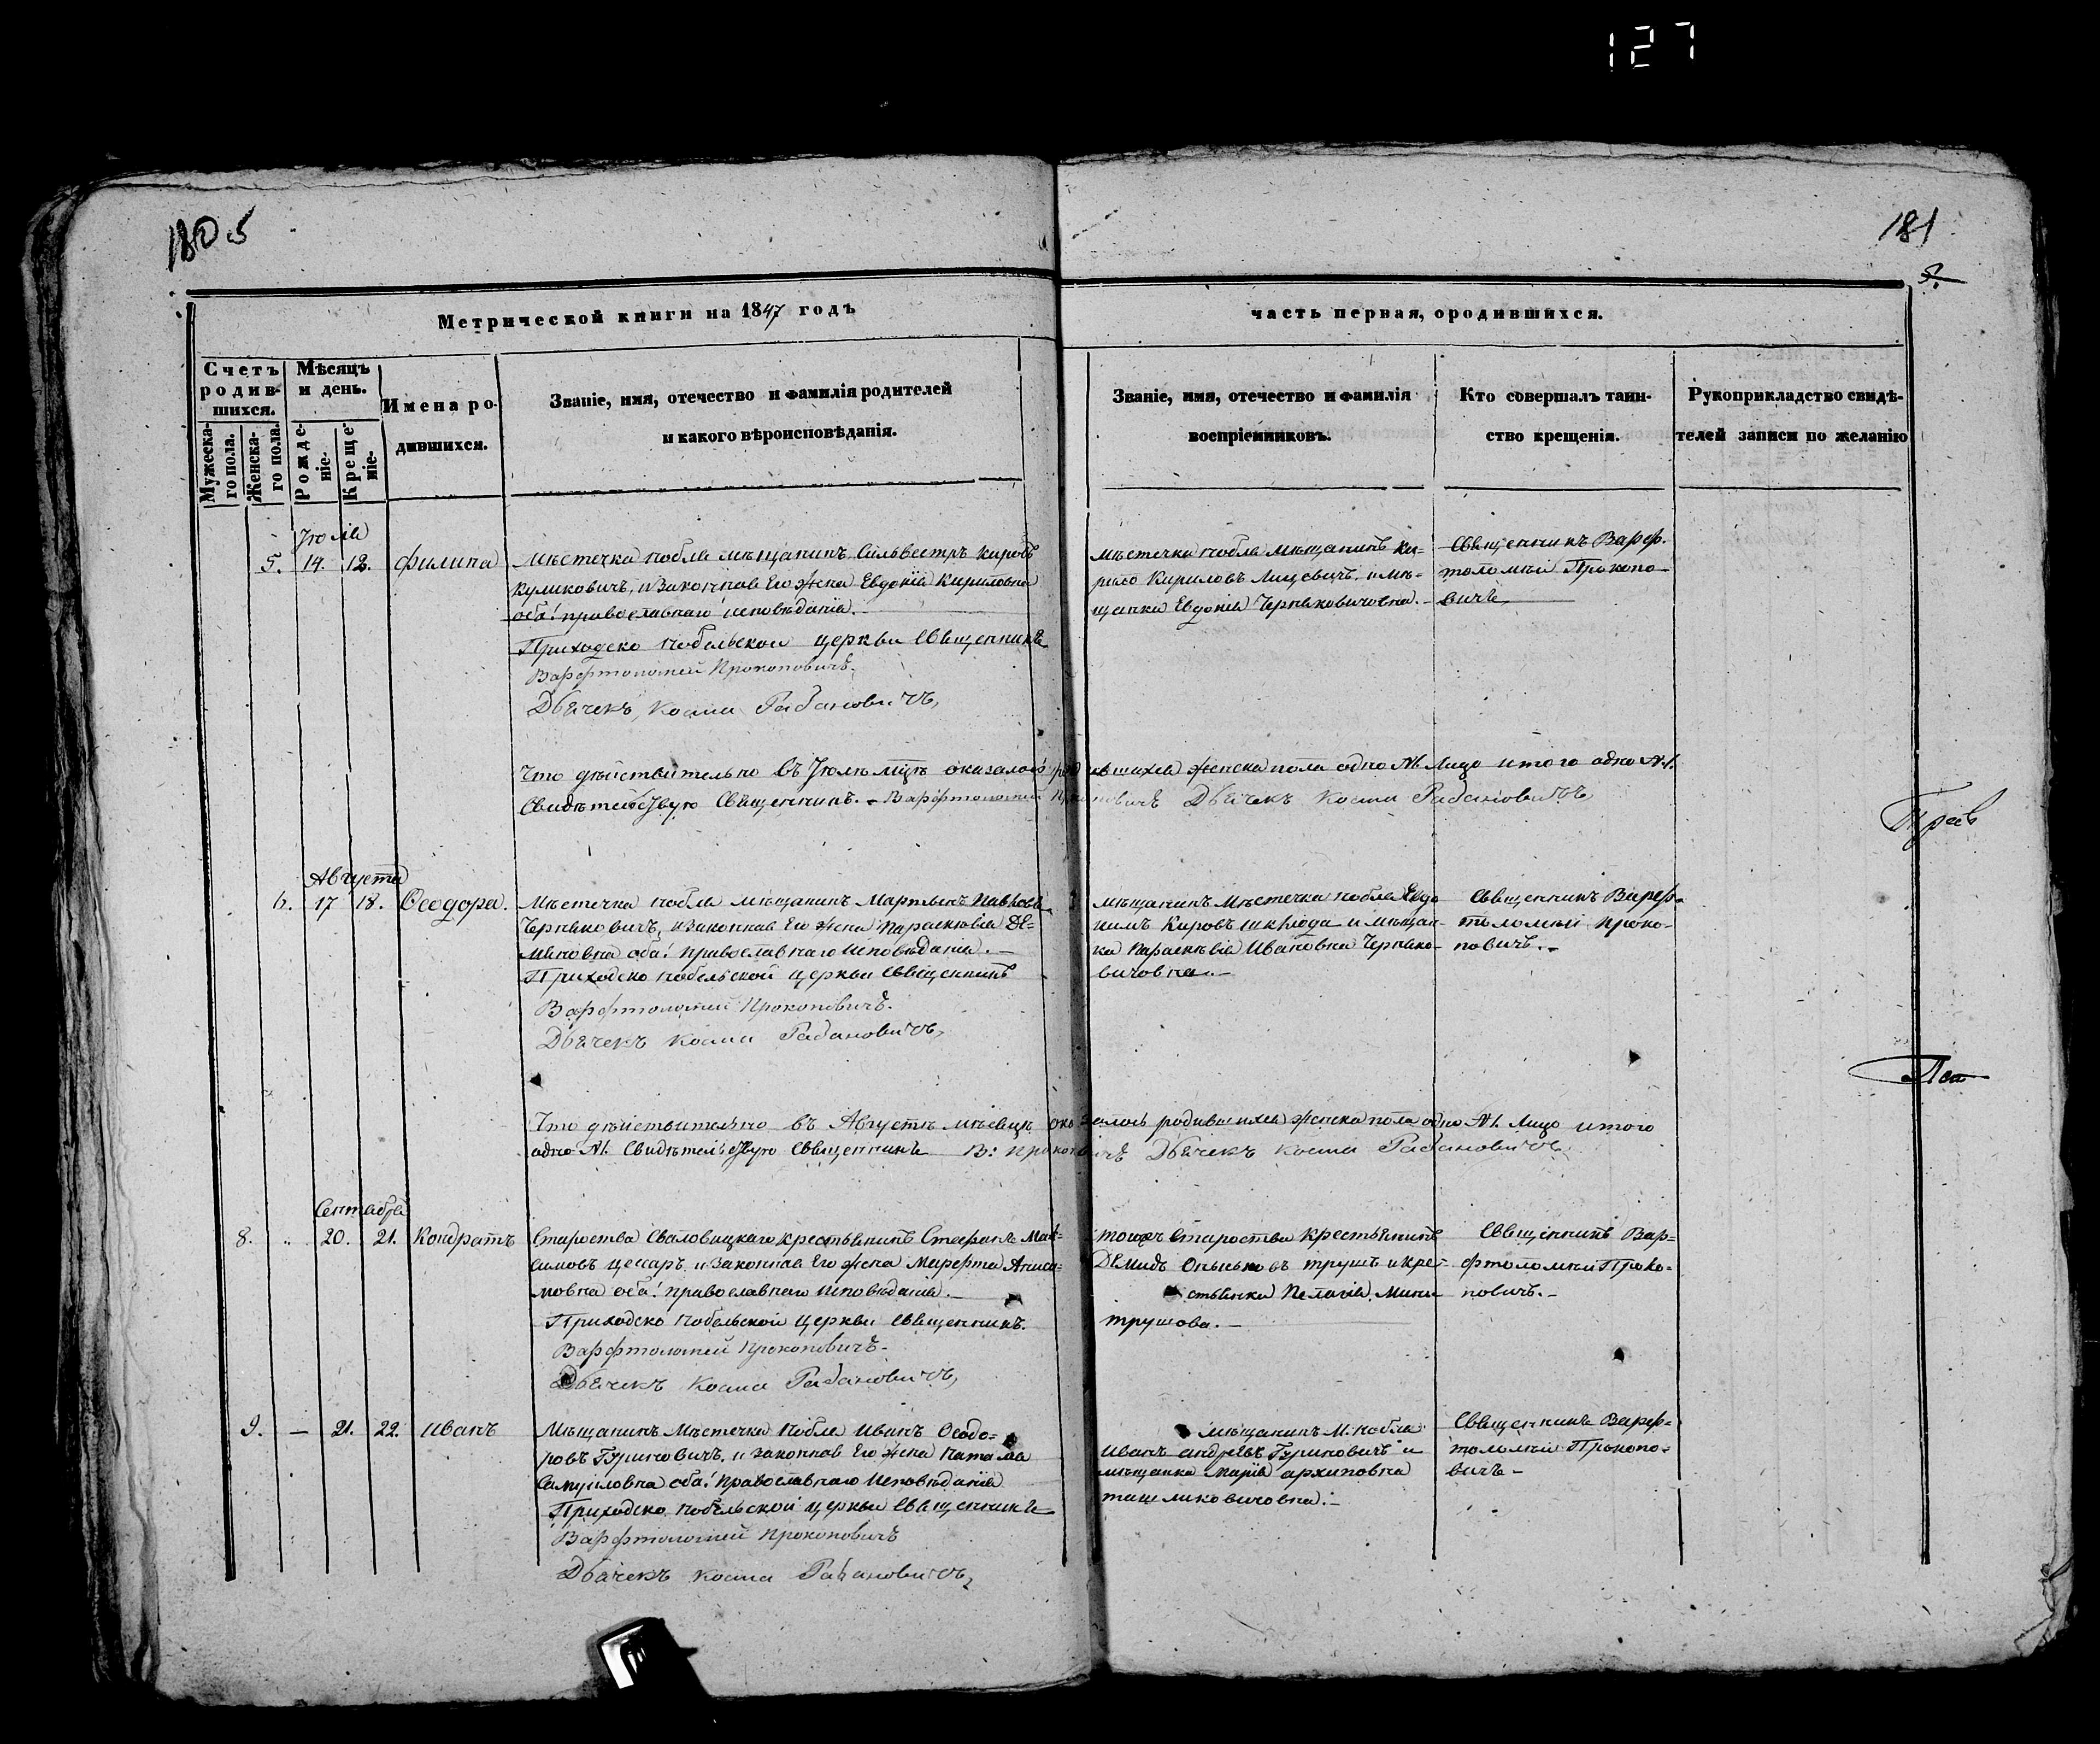 127
180. 5
181
5.
Метрической книги на 1847 годъ
часть первая, ородившихся.
Счетъ родив-шихся.
Мужеска-го пола.
Женска-го пола.
Мѣсяцъ и день.
Рожде-ніе.
Креще-ніе.
Имена ро-дившихся.
Званіе, имя, отечество и фамилія родителей
и какого вѣроисповѣданія.
Званіе, имя, отечество и фамилія
воспріемниковъ.
Кто совершалъ таин-
ство крещенія.
Рукоприкладство свидѣ-
телей записи по желанію
Июля
5. 14. 18.
Мѣстечка Нобля мѣщанинъ Сильвестръ Кировъ
Куликовичъ, и Законная Его Жена Евдокія Кириловна
оба: православнаго исповѣданія.
Приходско Нобельской церкви Священникъ
Варфтоломей Прокоповичъ.
Дьячекъ, Косма Рабановичъ,
мѣстечка Нобля мѣщанинъ Ки-
рило Кириловъ и мѣ-
щанка Евдокія Черняковичовна.
Священникъ Варф-
толомѣй Прокопо-
вичъ
Что дѣйствительно въ Июлѣ мцѣ оказалось родившихся женска пола одно №1 Лицо итого одно №1.
Свидѣтельствую Священникъ. Варфтоломей Прокоповичъ Дьячекъ Косма Рабановичъ
Августа
6. 17 18. Феодора.
Мѣстечка Нобля мѣщанинъ Мартынъ Павловъ
Черняковичъ, и Законная Его Жена Параскевія Де-
мяновна оба: православнаго Исповѣданія.
Приходско Нобельской церкви Священникъ
Варфтоломей Прокоповичъ.
Дьячекъ Косма Рабановичъ,
мѣщанинъ Мѣстечка Нобля Евдо-
кимъ Кировъ и мѣщан-
ка Параскевія Ивановна Черняко-
вичовна.
Священникъ Варф-
толомѣй Проко-
повичъ.
Что дѣйствительно въ Августѣ мѣсяцѣ оказалось родившихся женска пола одно №1. Лицо итого
одно №1. Свидѣтельствую Священникъ В: Прокоповичъ Дьячекъ Косма Рабановичъ,
Сентября
8. „ 20. 21. Кондратъ
Староства Сваловицкаго крестьянинъ Стефанъ Мак-
симовъ Цесаръ, и Законная Его Жена Марфта Аниси-
мовна оба: православнаго Исповѣданія.
Приходско Нобельской Церкви Священникъ.
Варфтоломей Прокоповичъ.
Дьячекъ Косма Рабановичъ,
тогожъ Староства Крестьянинъ
Демидъ трушъ и кре-
стьянка Пелагія
трушова.
Священникъ Вар-
фтоломѣй Проко-
повичъ.
9. — 21. 22. Иванъ
Мѣщанинъ Мѣстечка Нобля Иванъ Феодо-
ровъ Гуриновичъ, и законная Его Жена Наталія
Самуиловна оба: Православнаго Исповѣданія
Приходско Нобельской церкви Священникъ
Варфтоломей Прокоповичъ
Дьячекъ Косма Рабановичъ,
мѣщанинъ М. Нобля
Иванъ андреевъ Гуриновичъ и
мѣщанка Марія архиповна
Священникъ Варф-
толомѣй Прокопо-
вичъ